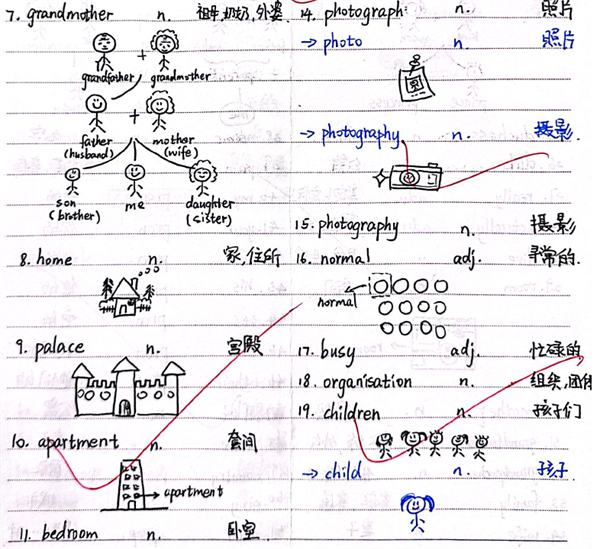 7. grandmother n. 祖母,奶奶,外婆
grandfather grandmother
father mother
(husband) (wife)
son me daughter
(brother) (sister)
8. home n. 家,住所
9. palace n. 宫殿
10. apartment n. 套间
apartment
11. bedroom n. 卧室
14. photograph n. 照片
→ photo n. 照片
→ photography n. 摄影
15. photography n. 摄影
16. normal adj. 寻常的
normal
17. busy adj. 忙碌的
18. organisation n. 组织,团体
19. children n. 孩子们
→ child n. 孩子